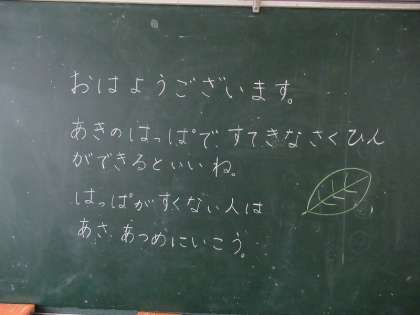 おはようございます。
あきのはっぱで、すてきなさくひん
ができるといいね。
はっぱがすくない人は
あさ、あつめにいこう。